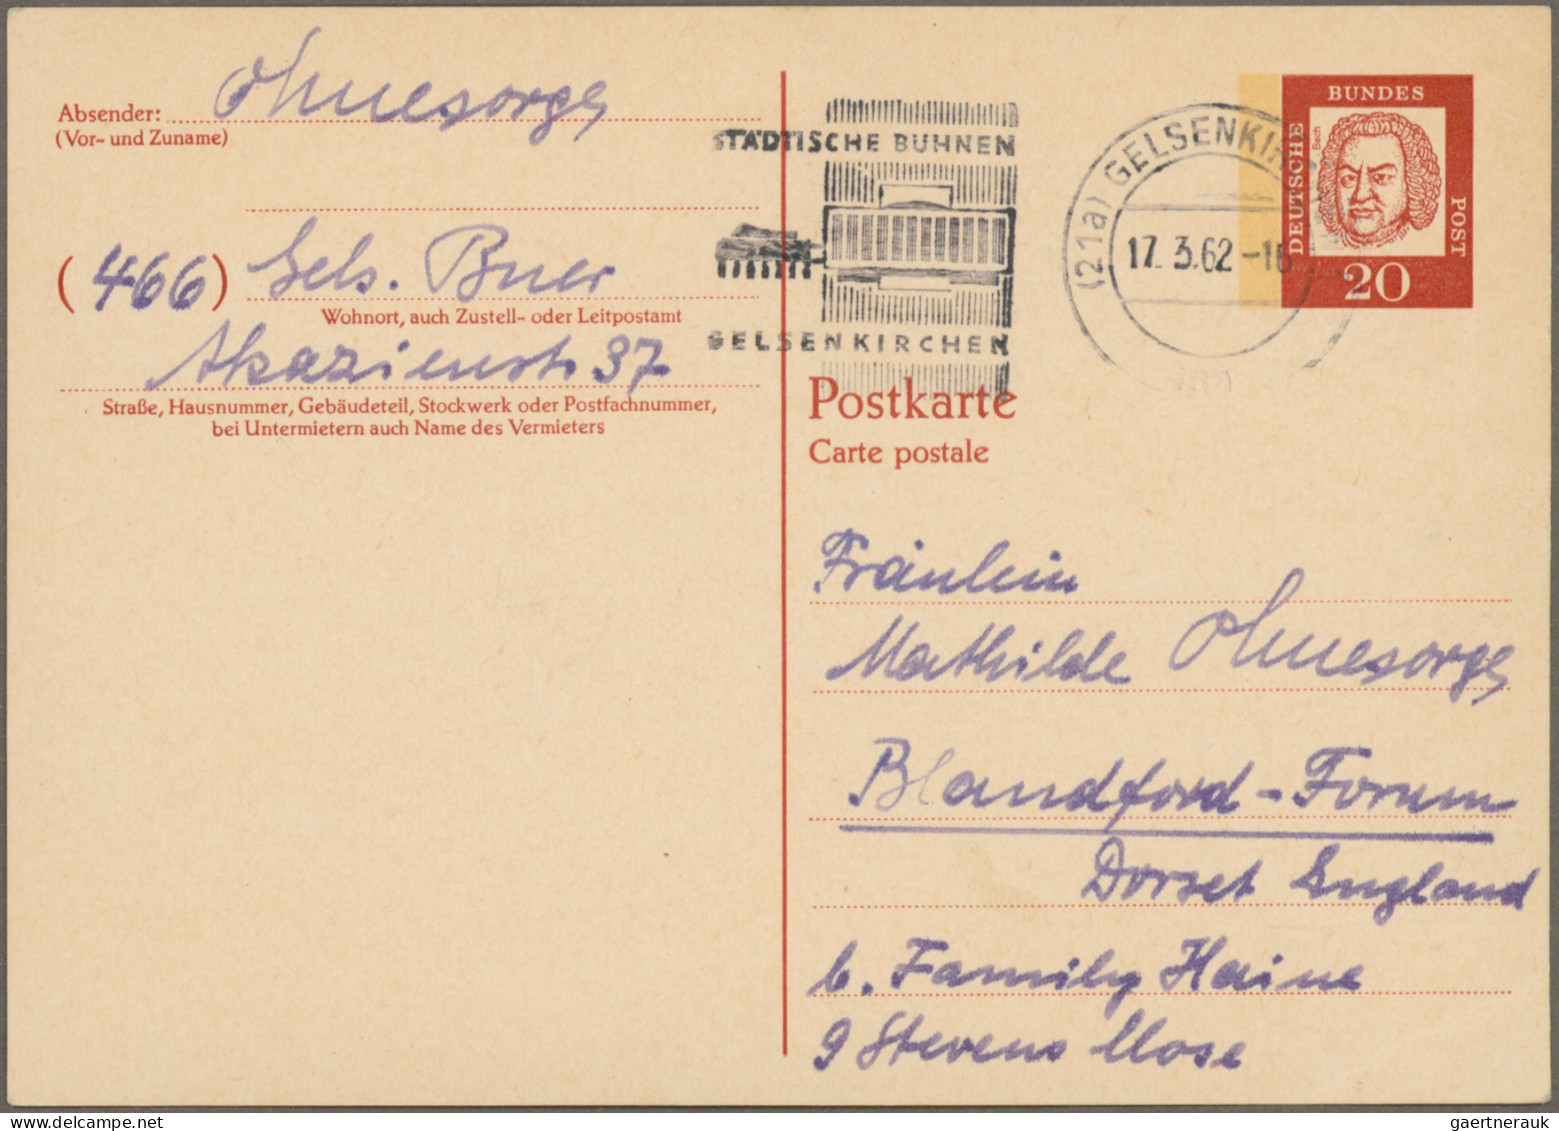 Absender: Ohnesorge
(Vor- und Zuname)
(466) Gels. Buer
Wohnort, auch Zustell- oder Leitpostamt
Akazienstr. 37
Straße, Hausnummer, Gebäudeteil, Stockwerk oder Postfachnummer,
bei Untermietern auch Name des Vermieters
STÄDTISCHE BÜHNEN
GELSENKIRCHEN
(21a) GELSENKIRCHEN
17. 3.62 -16
DEUTSCHE
BUNDES
POST
Bach
20
Postkarte
Carte postale
Fräulein
Mathilde Ohnesorge
Blandford-Forum
Dorset England
b. Family Haine
9 Stevens Close
gaertnerauk